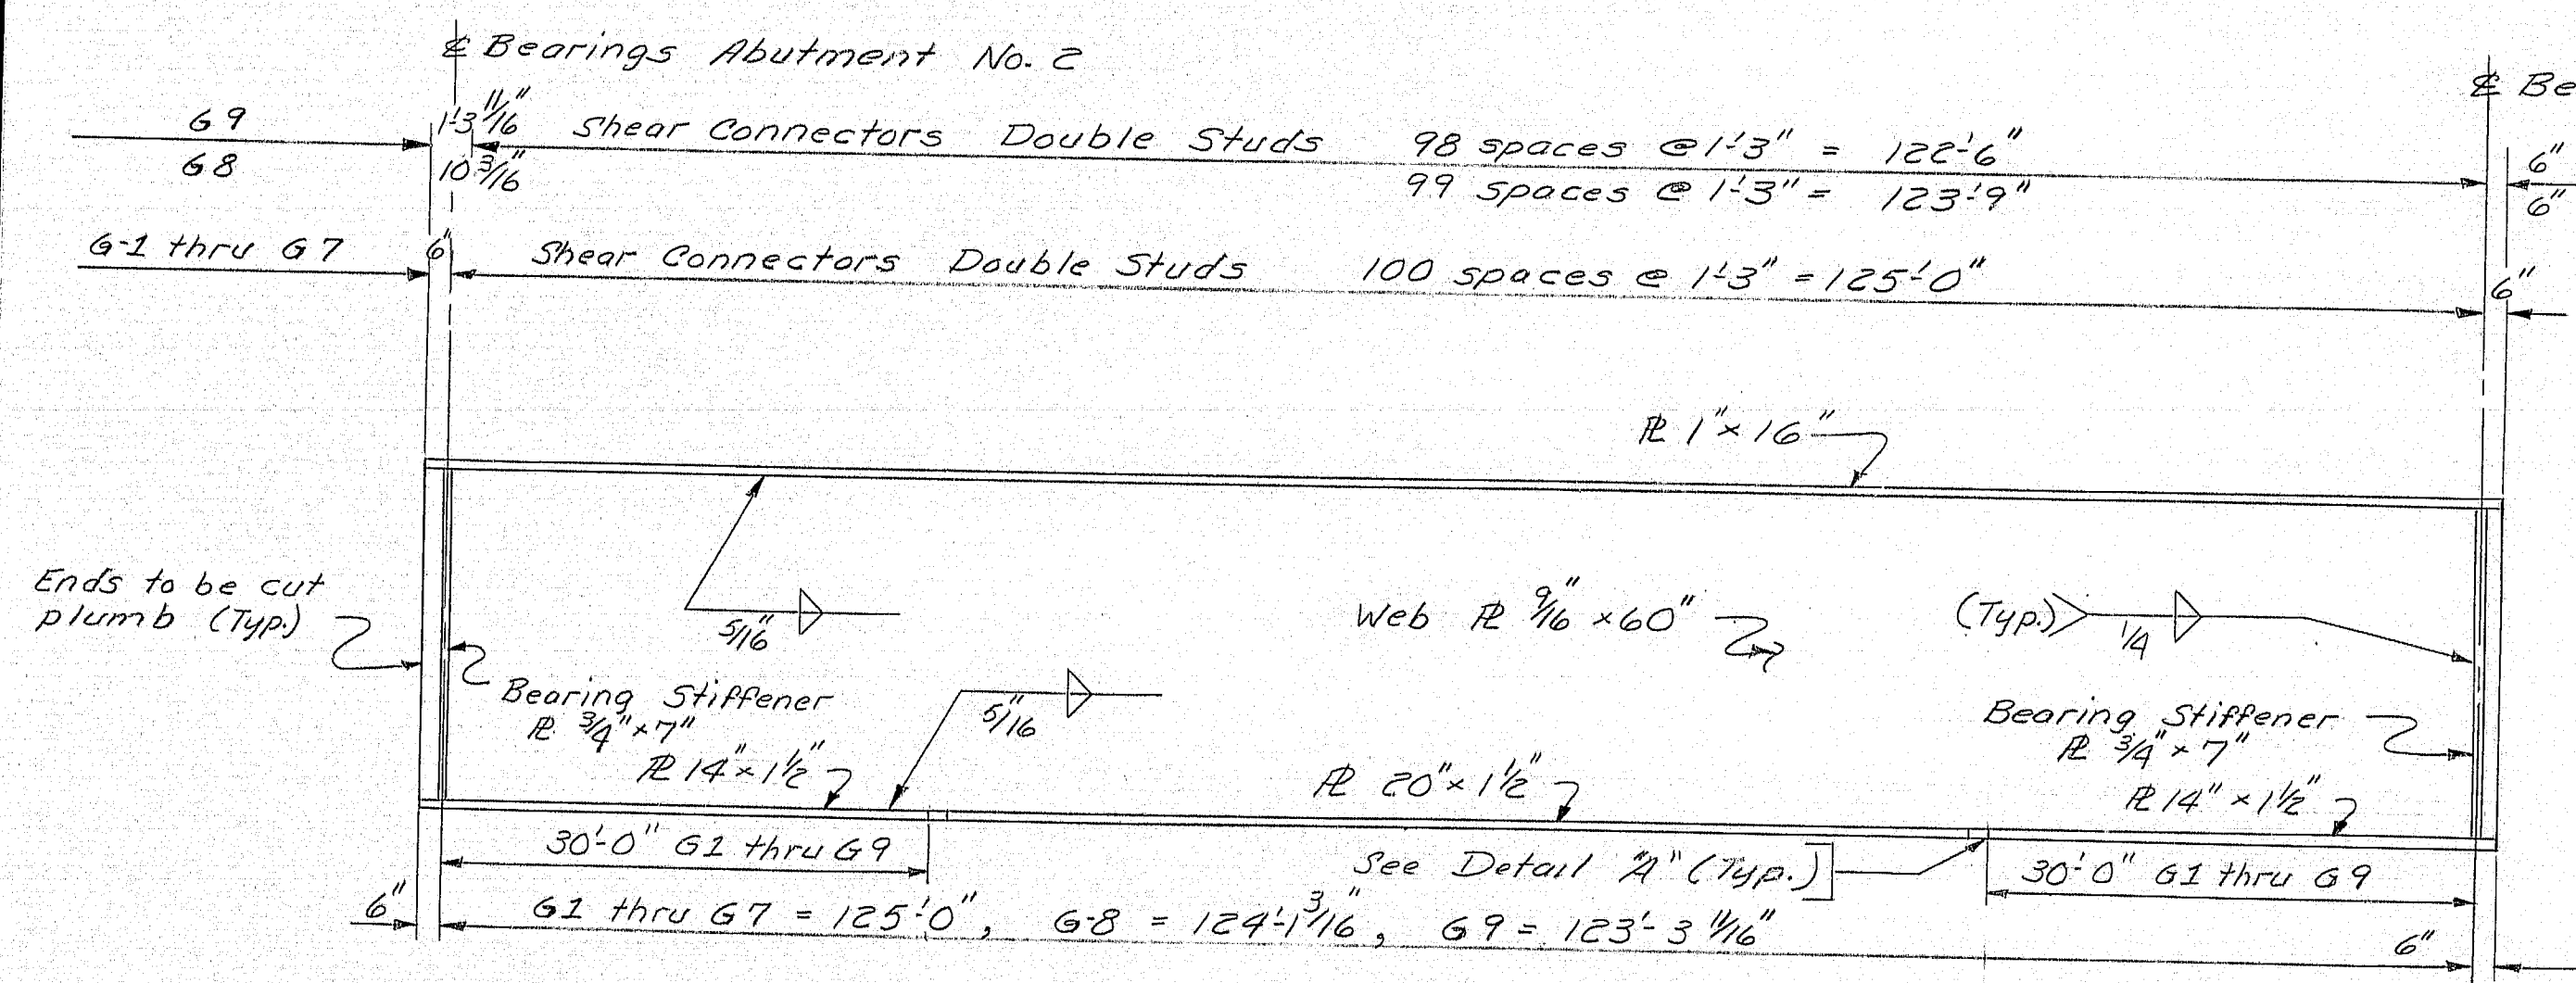 ℄ Bearings Abutment No. 2
℄ Be
G9
1'-3 11/16"
Shear Connectors Double Studs 98 spaces @ 1'-3" = 122'-6"
6"
G8
10 3/16"
99 spaces @ 1'-3" = 123'-9"
6"
G-1 thru G7
6"
Shear Connectors Double Studs 100 spaces @ 1'-3" = 125'-0"
6"
PL 1" x 16"
Ends to be cut
plumb (Typ.)
5/16"
Web PL 9/16" x 60"
(Typ.)
1/4
Bearing Stiffener
PL 3/4" x 7"
5/16"
Bearing Stiffener
PL 3/4" x 7"
PL 14" x 1 1/2"
PL 20" x 1 1/2"
PL 14" x 1 1/2"
30'-0" G1 thru G9
See Detail "A" (Typ.)
30'-0" G1 thru G9
6"
G1 thru G7 = 125'-0", G-8 = 124'-1 3/16", G9 = 123'-3 11/16"
6"